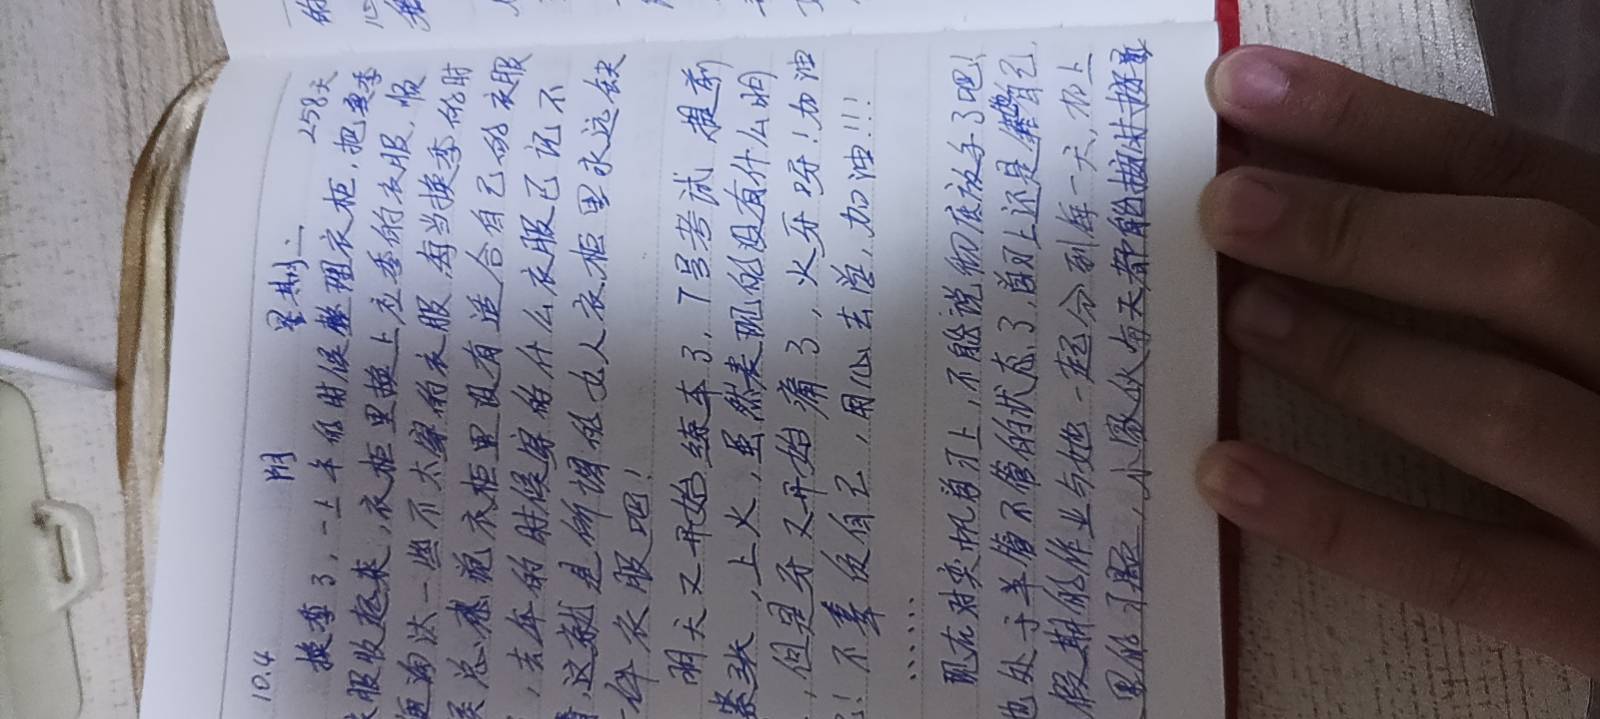 10.4 阴 星期二 258天
换季了,一上午的时候整理衣柜,把夏季
衣服收起来,衣柜里换上应季的衣服,顺
便淘汰一些不太穿的衣服,每当换季的时
候总感觉衣柜里没有适合自己的衣服
,去年的时候穿的什么衣服已记不
清,这就是所谓的女人衣柜里永远缺
一件衣服吧!
明天又开始练车了,7号考试,提前
紧张,上火,虽然表现的没有什么明
,但是牙又开始痛了,火牙呀!加油
!不要负自己,用心去学,加油!!!
.....
现在对奕帆学习上,不能说彻底放手了吧,
他处于半管不管的状态了,学习上还是靠自己,
假期的作业与她一起分到每一天,加上
里的习题,小家伙每天都能按时按量